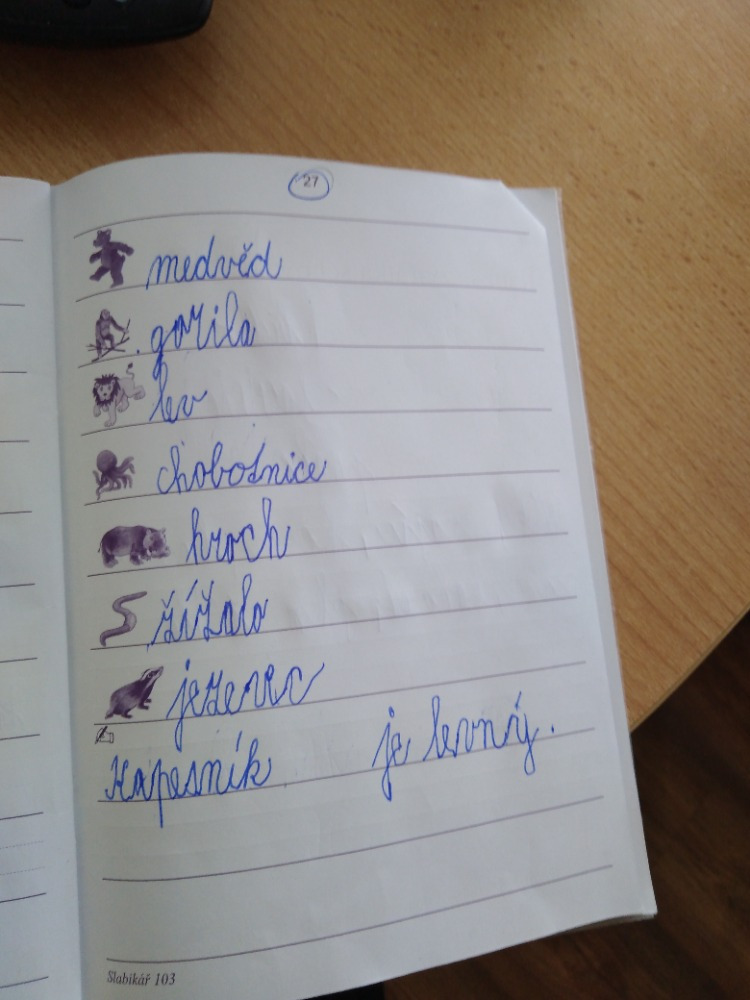 27
medvěd
gorila
lev
chobotnice
hroch
žížala
jezevec
Kapesník je levný.
Slabikář 103